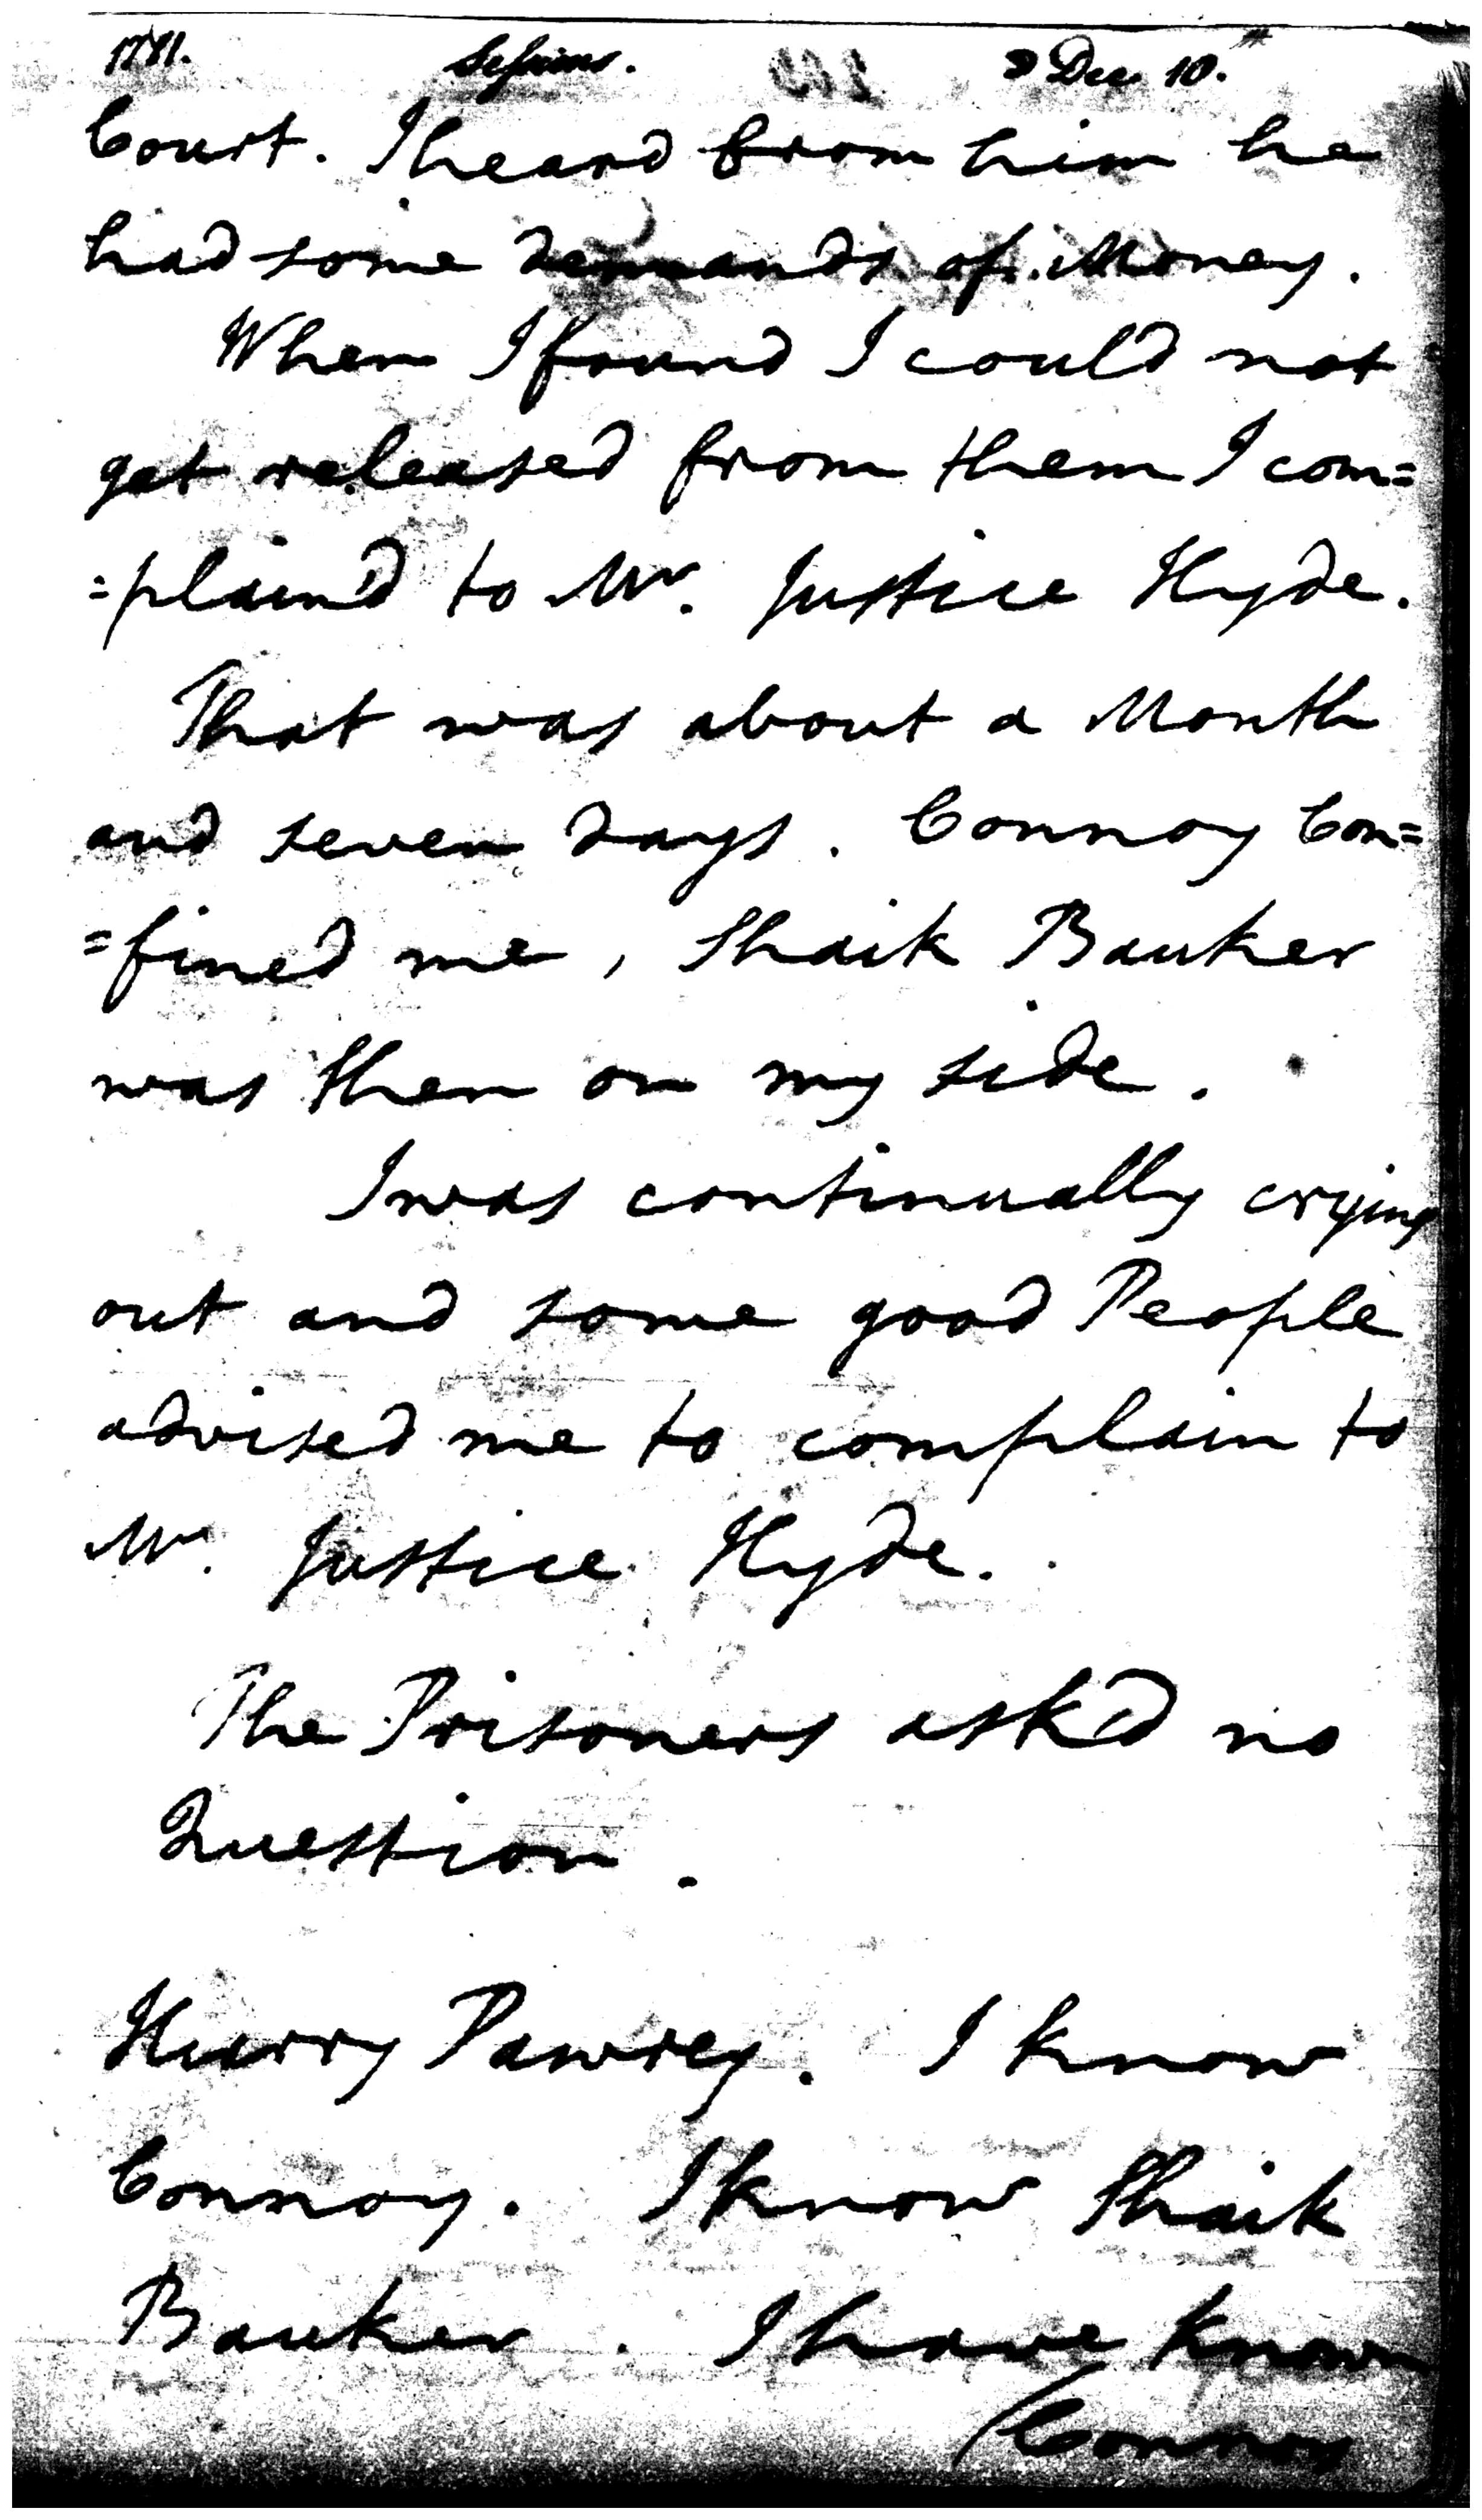 1781. Sessions. ☽ Dec 10.th
Court. I heard from him he
had some demands of Money.
When I found I could not
get released from them I com=
=plain'd to Mr. Justice Hyde.
That was about a Month
and seven days. Connoy Con=
=fined me, Shaik Bauker
was then on my side.
I was continually crying
out and some good People
advised me to complain to
Mr. Justice Hyde.
The Prisoners ask'd no
Question.
Hurry Pawrey. I know
Connoy. I know Shaik
Bauker. I have known
Connoy